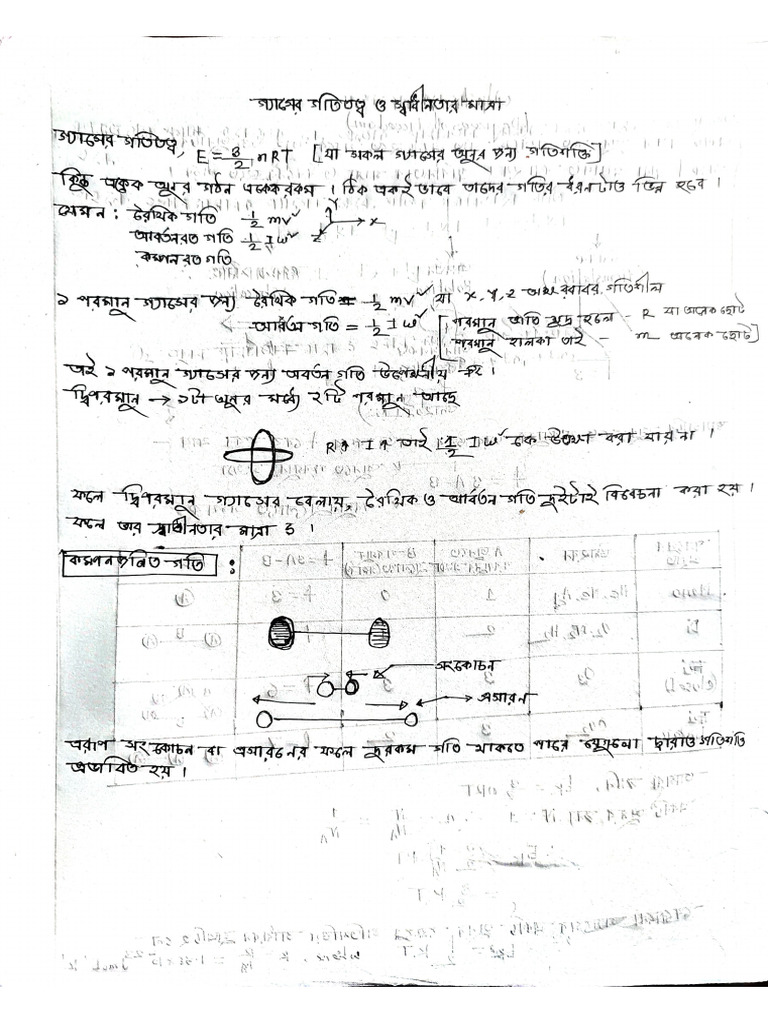 গ্যাসের গতিতত্ত্ব ও স্বাধীনতার মাত্রা
গ্যাসের গতিতত্ত্ব, E = 3/2 nRT [যা সকল গ্যাসের অনুর জন্য গতিশক্তি]
কিন্তু একেক অনুর গঠন একেকরকম। ঠিক একই ভাবে তাদের গতির ধরনটাও ভিন্ন হবে।
যেমন : রৈখিক গতি 1/2 mv² Y X Z
আবর্তনরত গতি 1/2 Iω²
কম্পনরত গতি
১ পরমানু গ্যাসের জন্য রৈখিক গতি = 1/2 mv² যা x, y, z অক্ষ বরাবর গতিশীল
আবর্তন গতি = 1/2 Iω² [পরমানু অতি ক্ষুদ্র হলে - R যা অনেক ছোট
পরমানু হালকা তাই - m অনেক ছোট]
তাই ১ পরমানু গ্যাসের জন্য আবর্তন গতি উল্লেখনীয় নয়।
দ্বিপরমানু → ১টা অনুর মধ্যে ২টি পরমানু আছে
R↑ I↑ তাই 1/2 Iω² কে উপেক্ষা করা যায় না।
ফলে দ্বিপরমানু গ্যাসের বেলায়, রৈখিক ও আবর্তন গতি দুইটাই বিবেচনা করা হয়।
ফলে তার স্বাধীনতার মাত্রা 5।
কম্পনজনিত গতি :
সংকোচন
প্রসারন
এরূপ সংকোচন বা প্রসারনের ফলে দুরকম গতি থাকতে পারে যেগুলো দ্বারাও গতিশক্তি
প্রভাবিত হয়।